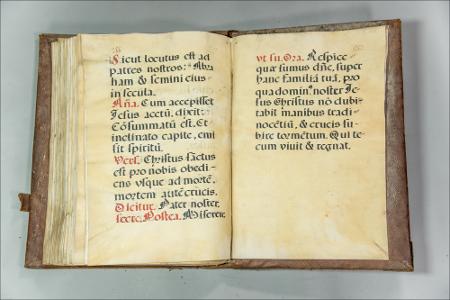 Sicut locutus est ad
patres nostros: Abra
ham & semini eius
in secula.
Aña. Cum accepisset
Iesus acetũ, dixit:
Cõsummatũ est. Et
inclinato capite, emi
sit spiritũ.
Vers. Christus factus
est pro nobis obedi-
ens vsque ad mortẽ,
mortem autẽ crucis.
Dicitur. Pater noster,
secrete. Postea. Miserere.
vt su. Ora. Respice
quæsumus dñe, super
hanc familiã tuã, pro
qua domin⁹ noster Ie-
sus Christus nõ dubi-
tabit manibus tradi
nocẽtiũ, & crucis su-
bire tormẽtum. Qui te
cum viuit & regnat.